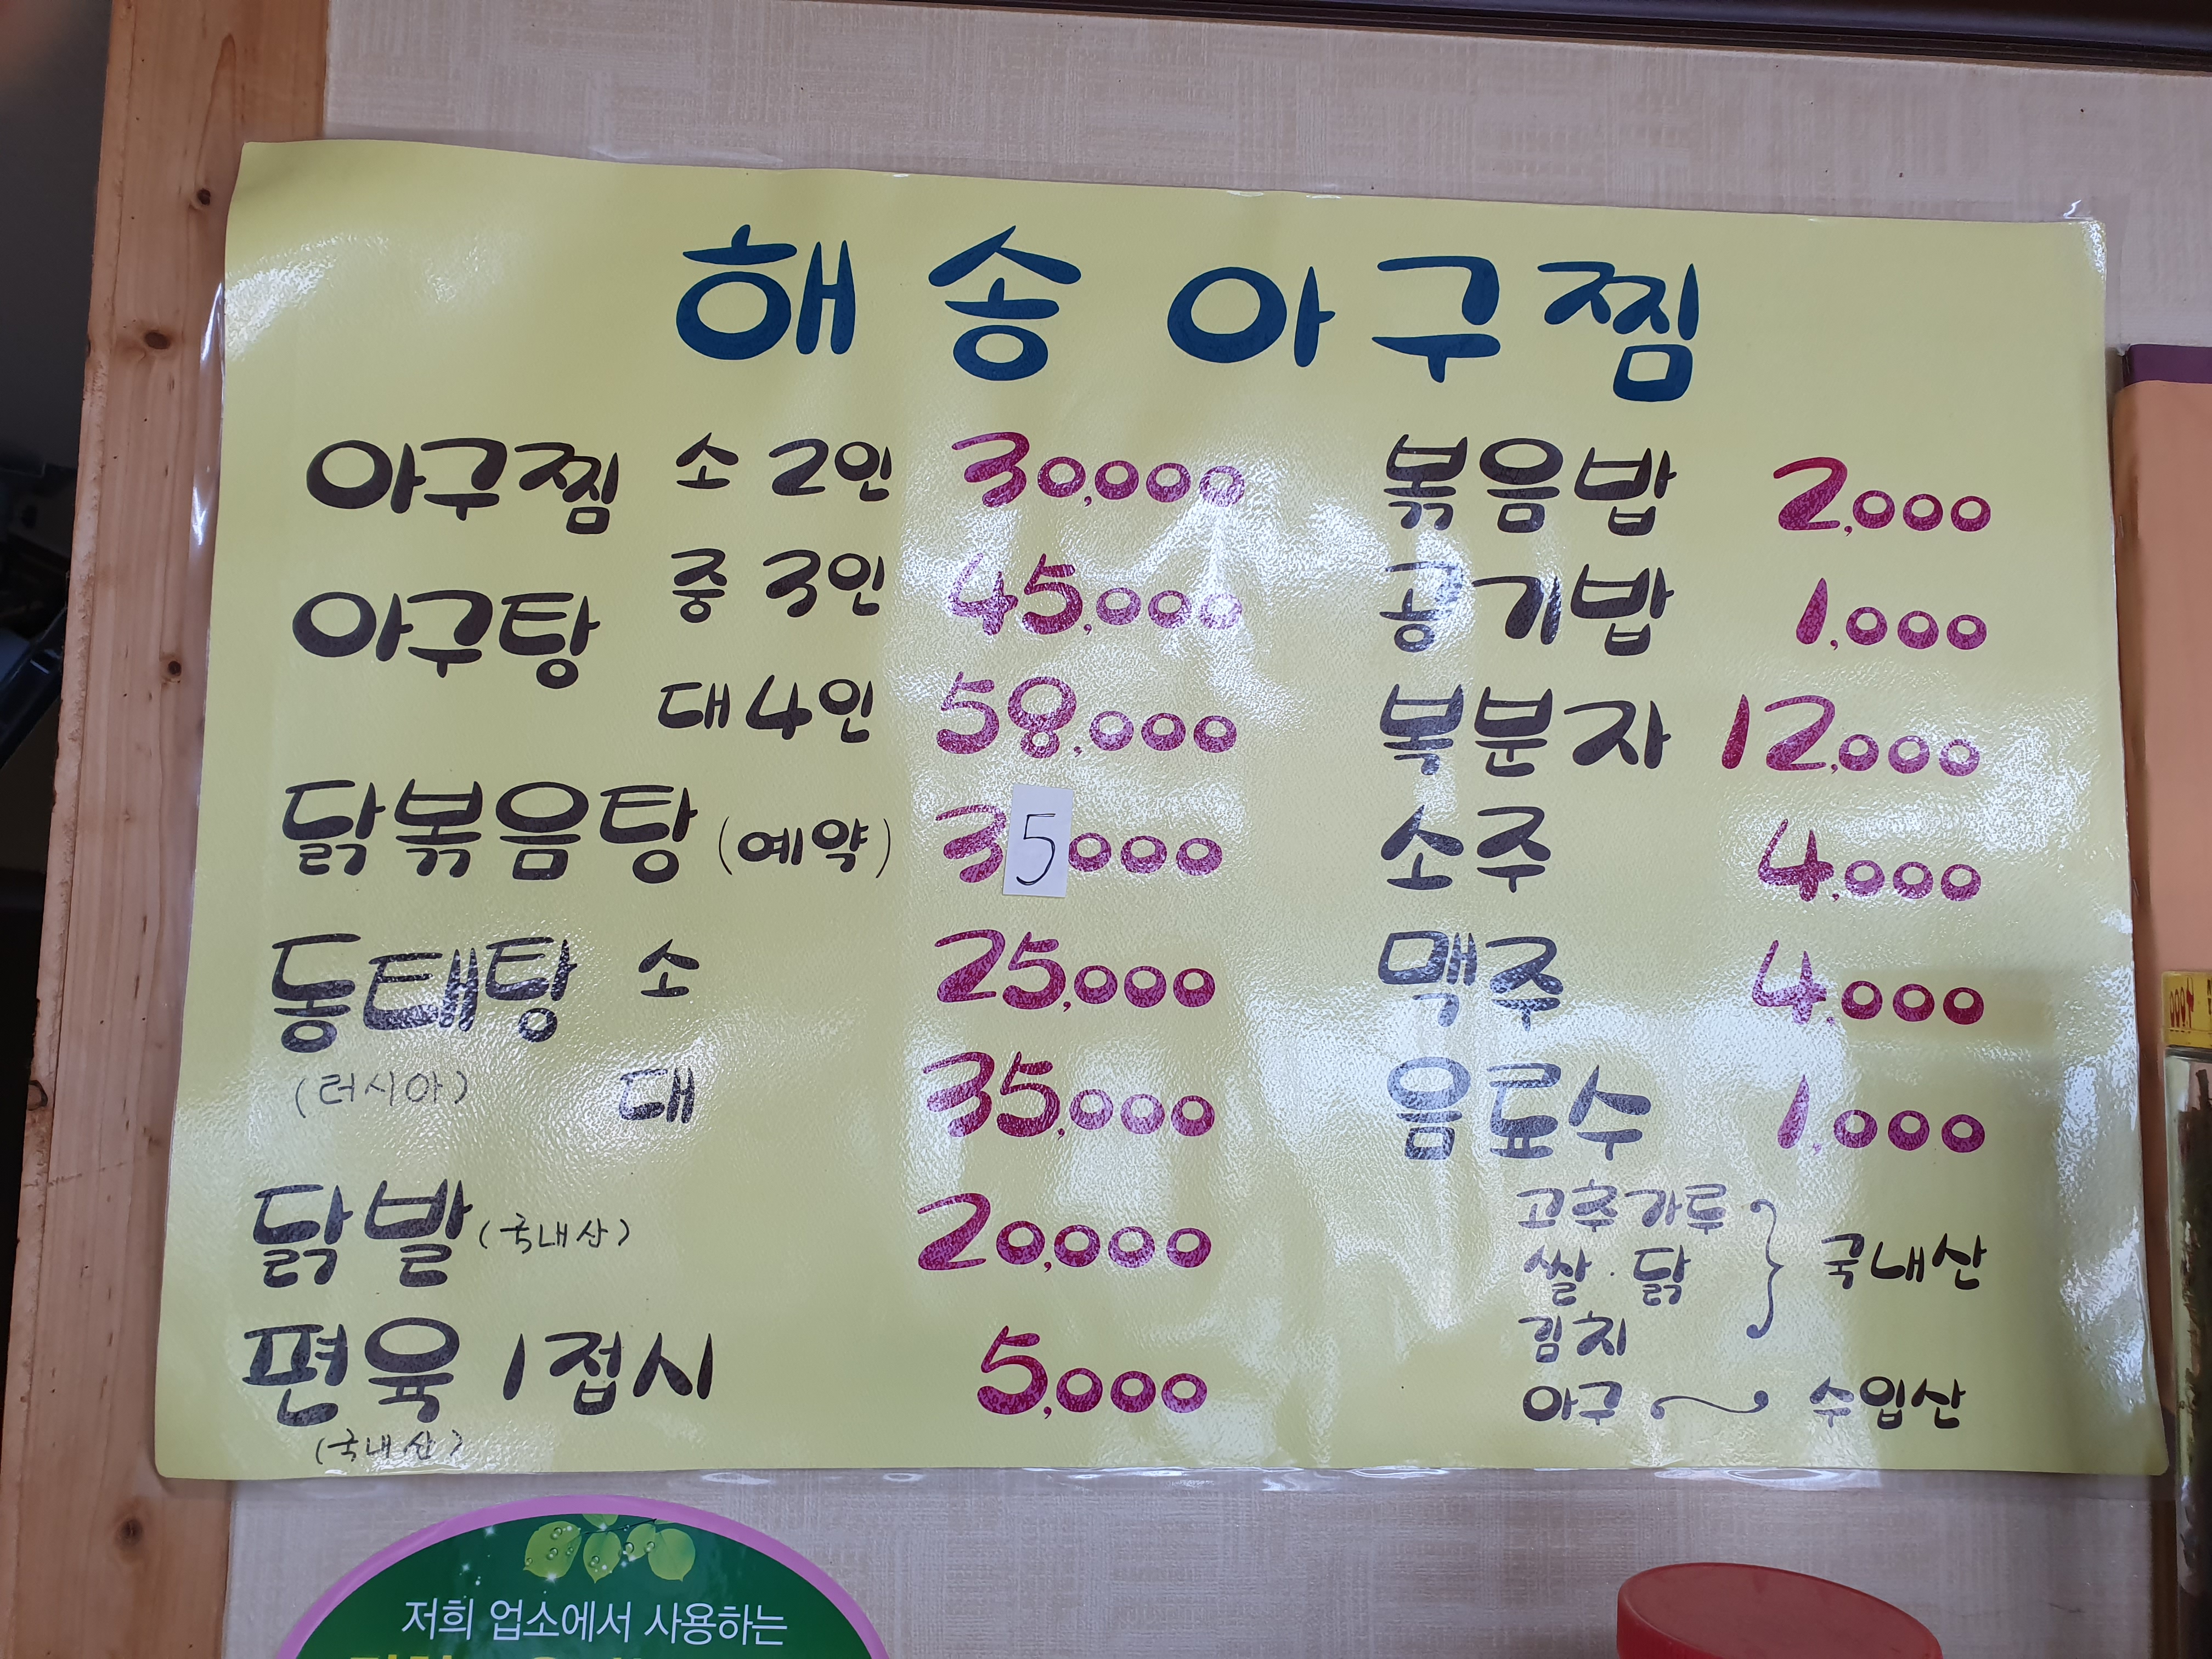 해송 아구찜
아구찜 소 2인 30,000
아구탕 중 3인 45,000
대 4인 58,000
닭볶음탕 (예약) 35000
동태탕 소 25,000
(러시아) 대 35,000
닭발 (국내산) 20,000
편육 1접시 5,000
(국내산)
볶음밥 2,000
공기밥 1,000
복분자 12,000
소주 4,000
맥주 4,000
음료수 1,000
고추가루
쌀·닭 } 국내산
김치
아구 ~ 수입산
저희 업소에서 사용하는